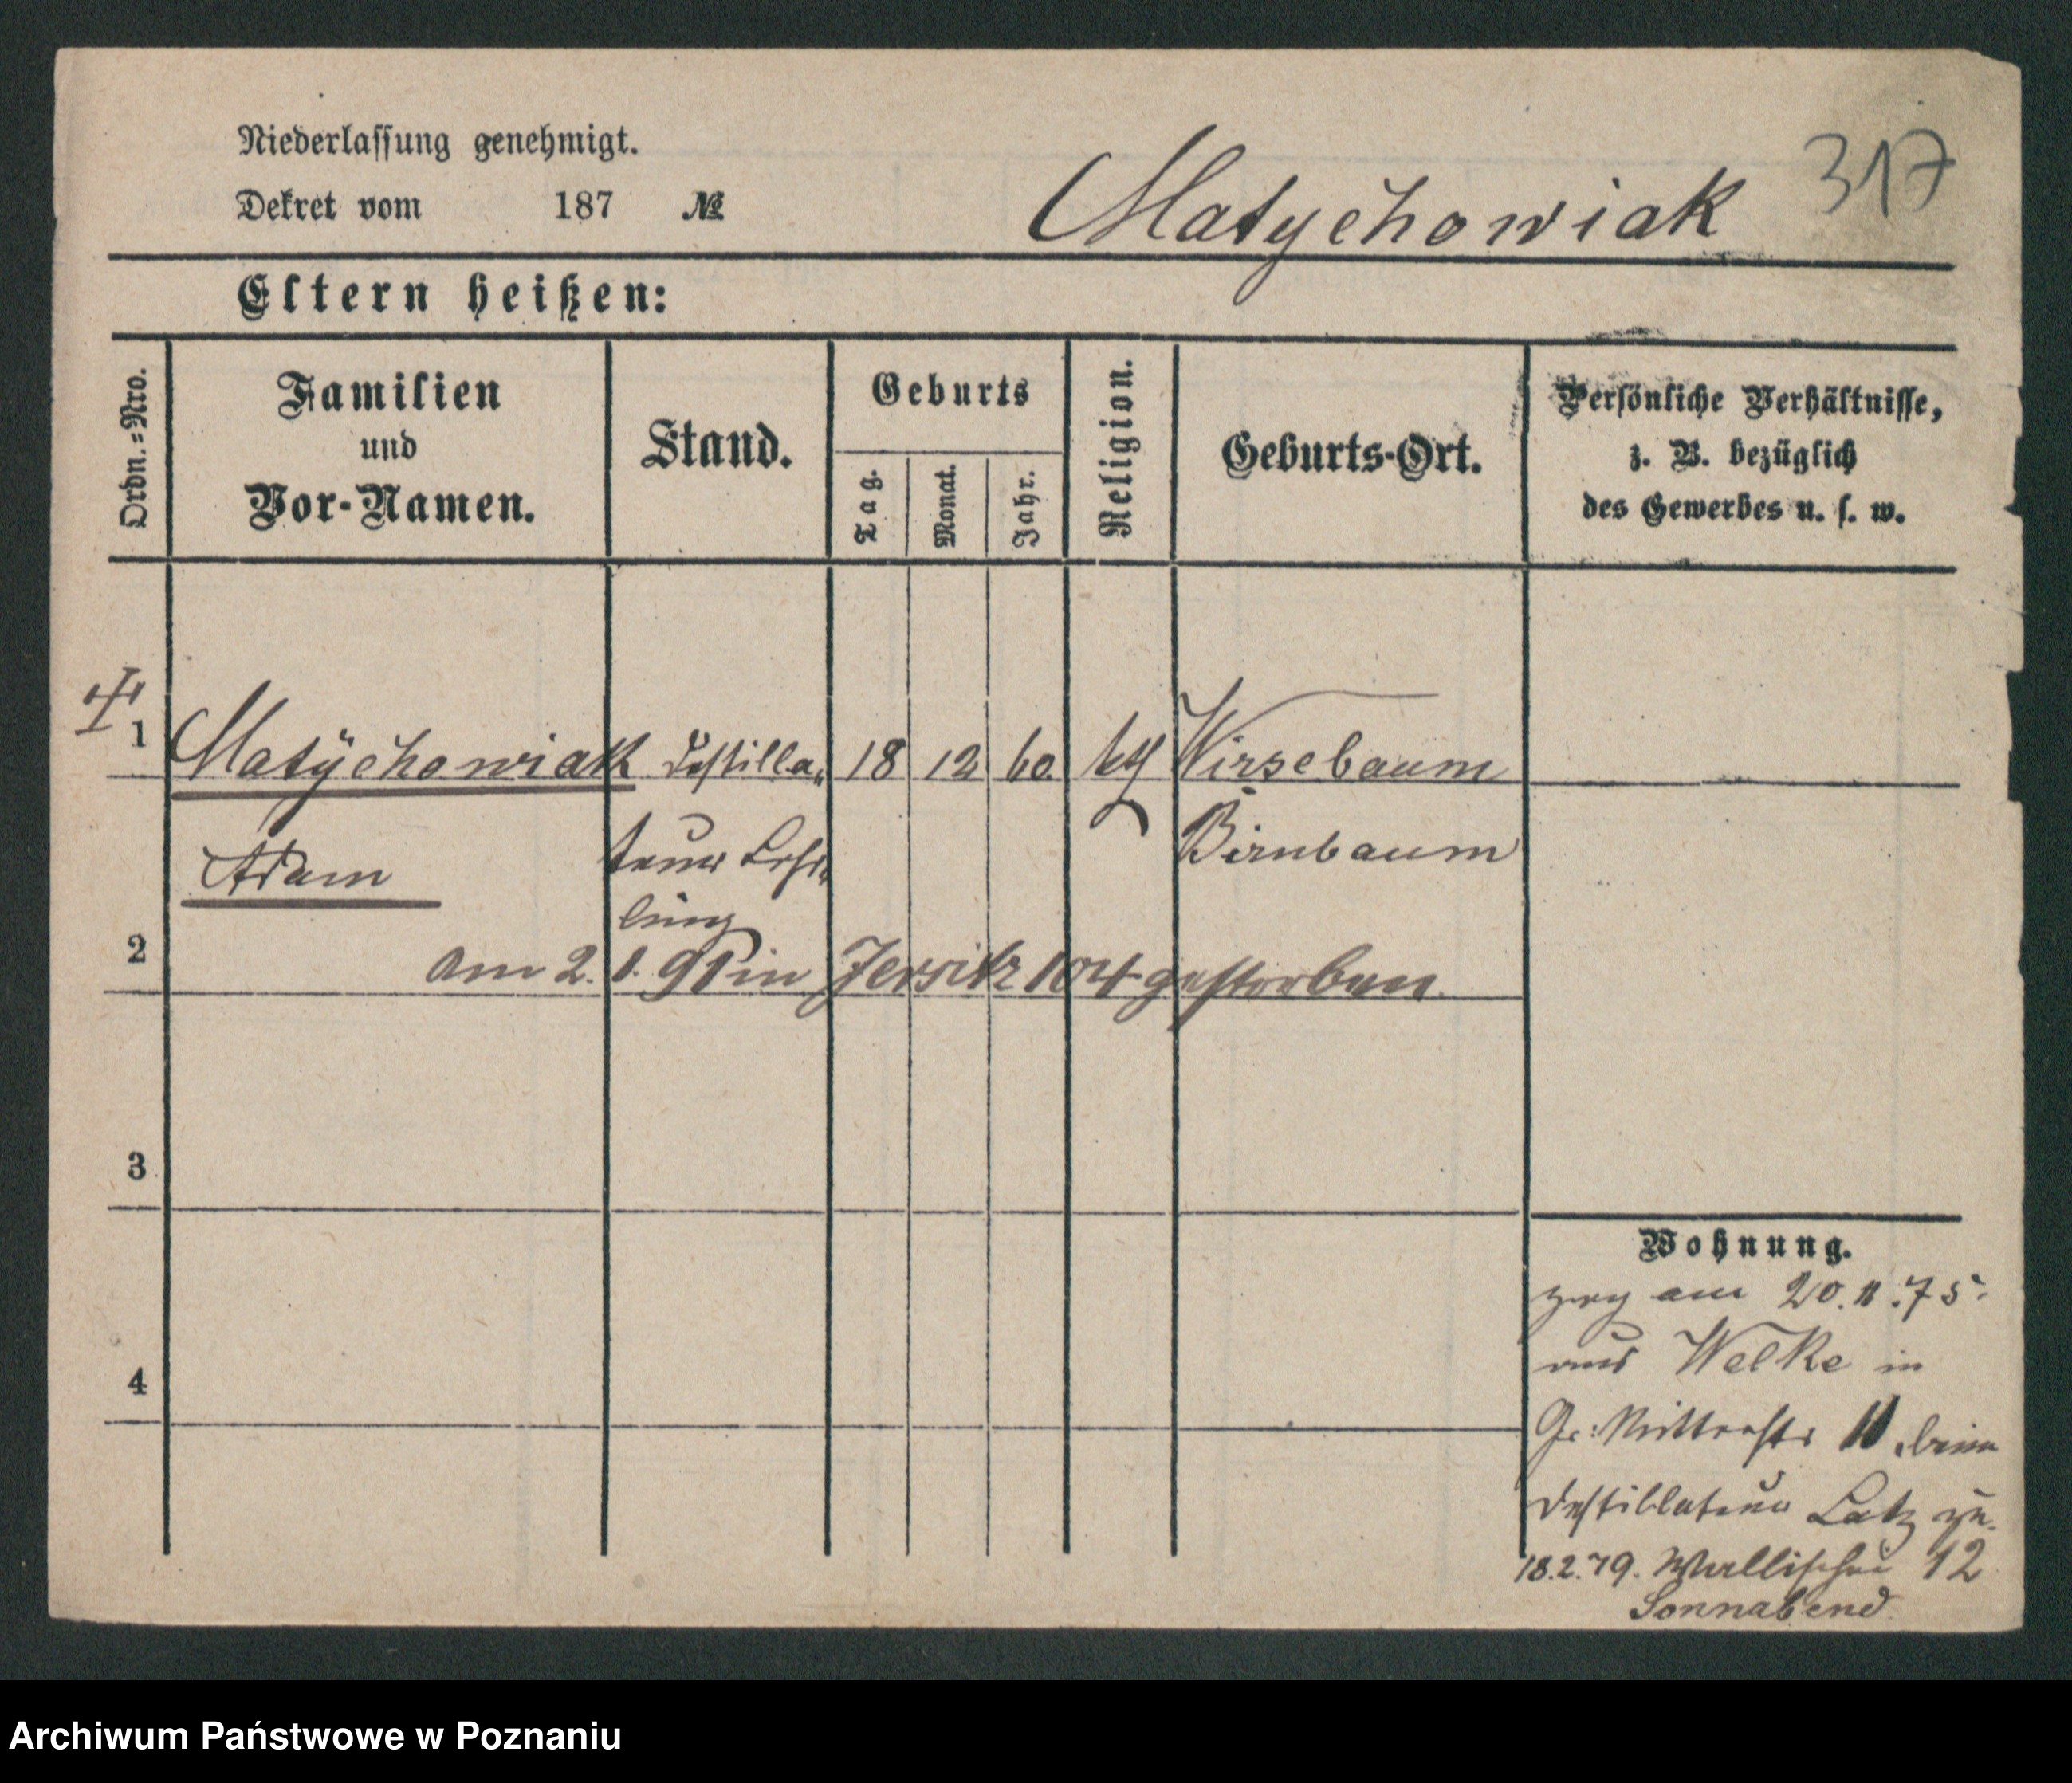 317
Niederlassung genehmigt.
Dekret vom 187 №
Matychowiak
Eltern heißen:
Ordn.=Nro.
Familien
und
Vor-Namen.
Stand.
Geburts
Tag.
Monat.
Jahr.
Religion.
Geburts-Ort.
Persönliche Verhältnisse,
z. B. bezüglich
des Gewerbes u. s. w.
1 Matychowiak Destilla= 18 12 60. Wirsebaum
Adam teur Lehr=
Birnbaum
ling
2 am 2. 1. 91 in Jersitz 104 gestorben.
3
4
Wohnung.
zog am 20.11.75.
aus Welke in
Gr: Ritterstr 11 beim
Destillateur Latz zu.
18.2.79. Wallischei 12
Sonnabend
Archiwum Państwowe w Poznaniu